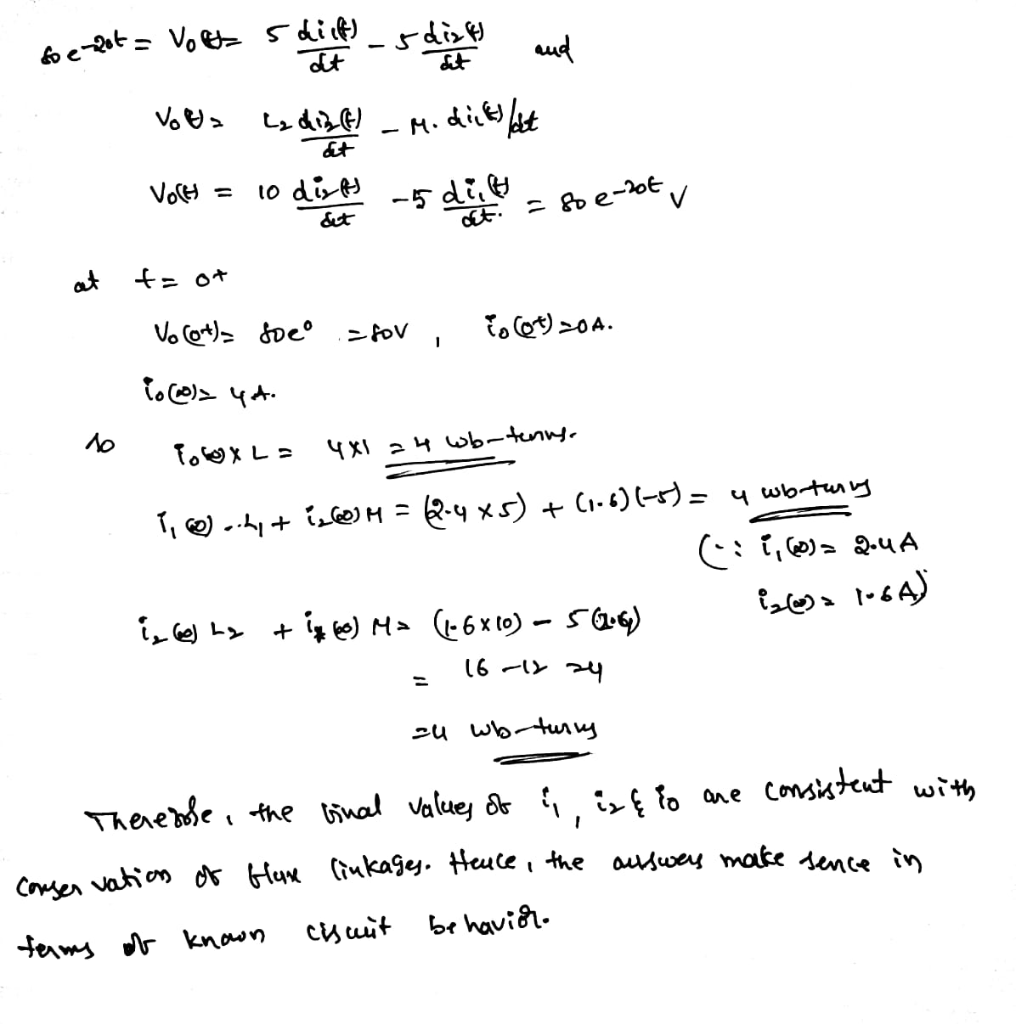 80 e^-20t = Vo(t) = 5 di1(t)/dt - 5 di2(t)/dt and
Vo(t) = L2 di2(t)/dt - M. di1(t)/dt
Vo(t) = 10 di2(t)/dt - 5 di1(t)/dt. = 80 e^-20t V
at t = 0+
Vo(0+) = 80e^0 = 80V , io(0+) = 0A.
io(∞) = 4A.
so io(∞) x L = 4x1 = 4 wb-turns.
i1(∞) .. L1 + i2(∞) M = (2.4 x 5) + (1.6)(-5) = 4 wb-turns
(∵ i1(∞) = 2.4A
i2(∞) = 1.6A)
i2(∞) L2 + i1(∞) M = (1.6x10) - 5(2.4)
= 16 - 12 = 4
= 4 wb-turns
Therefore, the final values of i1, i2 & io are consistent with
conservation of flux linkages. Hence, the answers make sence in
terms of known circuit behavior.